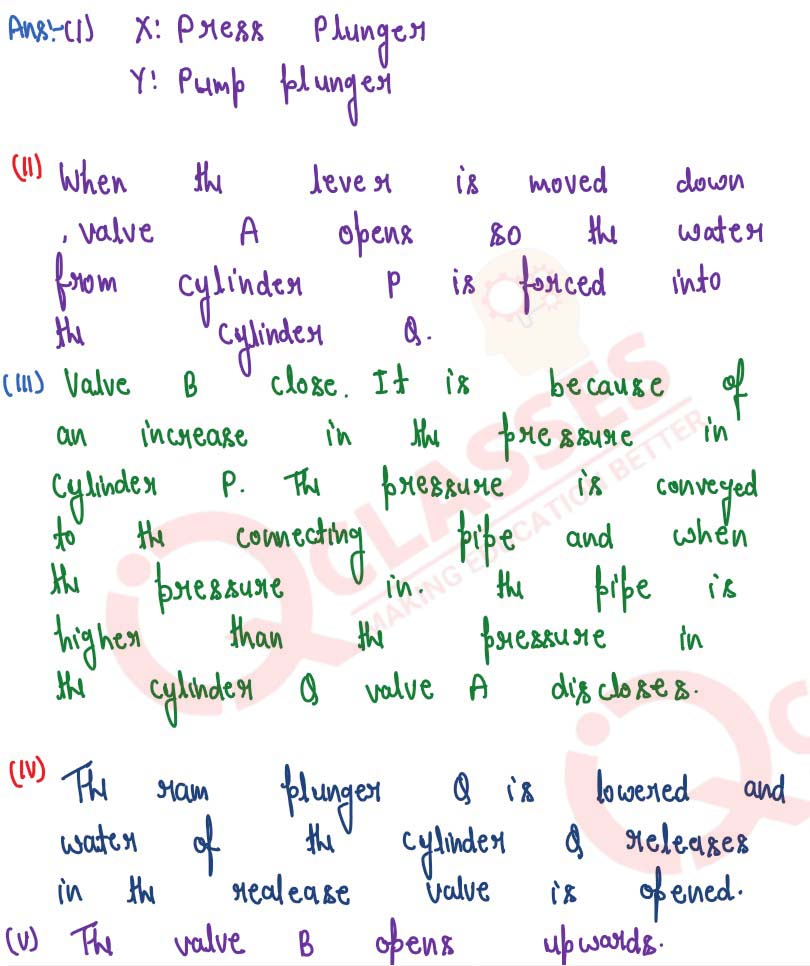 Ans:-(I) X: Press Plunger
Y: Pump plunger
(II) When the lever is moved down
, valve A opens so the water
from cylinder P is forced into
the cylinder Q.
(III) Valve B close. It is because of
an increase in the pressure in
cylinder P. The pressure is conveyed
to the connecting pipe and when
the pressure in. the pipe is
higher than the pressure in
the cylinder Q valve A discloses.
(IV) The ram plunger Q is lowered and
water of the cylinder Q releases
in the realease valve is opened.
(V) The valve B opens upwards.
IQ CLASSES
MAKING EDUCATION BETTER